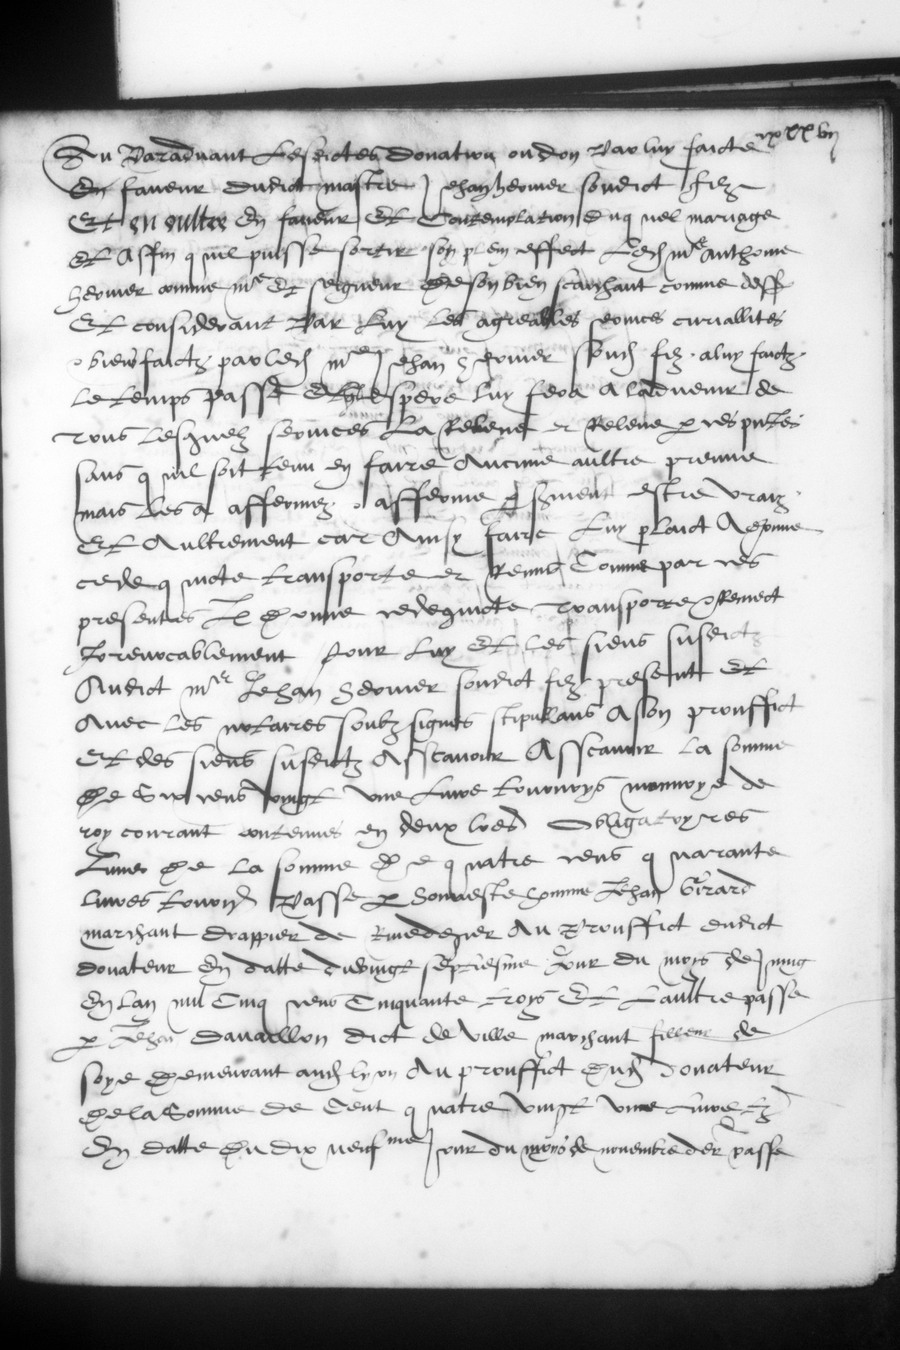 Au paradvant lesdictes donation ou don par luy faicte
En faveur dudict maistre Jehan hervier sondict filz
Et en oultre En faveur Et Contemplation duquel mariage
Et Affin quil puisse sortir son plein effect Led mre Anthoine
hervier comme mre Et seigneur de son bien scaichant comme dess
Et considerant par luy les agreables services curiallites
bienfaictz par led mre Jehan hervier sond filz a luy faictz
le temps passe Et quil espere luy fera a ladvenir de
tous lesquelz services la releve et releve p ces pntes
sans quil soit tenu en faire Aucune aultre preuve
mais les a affermez afferme p serment estre vraiz
Et Aultrement car Ainsy faire luy plaict A donne
cede quicte transporte et remis Comme par ces
presentes Il donne cede quicte transporte remect
Irrevocablement pour luy Et les siens susdictz
Audict mre Jehan hervier sondict filz present Et
Avec les notaires soubz signes stipullans A son prouffict
Et des siens susdictz Asscavoir Asscavoir la somme
De six cens vingt une livre tournoys monnoye de
roy courant contenus en deux lres Obligatoyres
Lune de la somme de quatre cens quarante
livres tourn passe p honneste homme Jehan Girard
marchant drappier de Rivedegier Au prouffict dudict
donateur En datte du vingt septiesme Jour du moys de Juing
En lan mil Cinq cens Cinquante troys Et laultre passe
p Jehan davaillon dict de ville marchant filleur de
soye demeurant aud lyon Au prouffict dud donateur
De la Somme de Cent quatre vingt une livre tz
En datte du dix neufme Jour du moys de novembre der passe